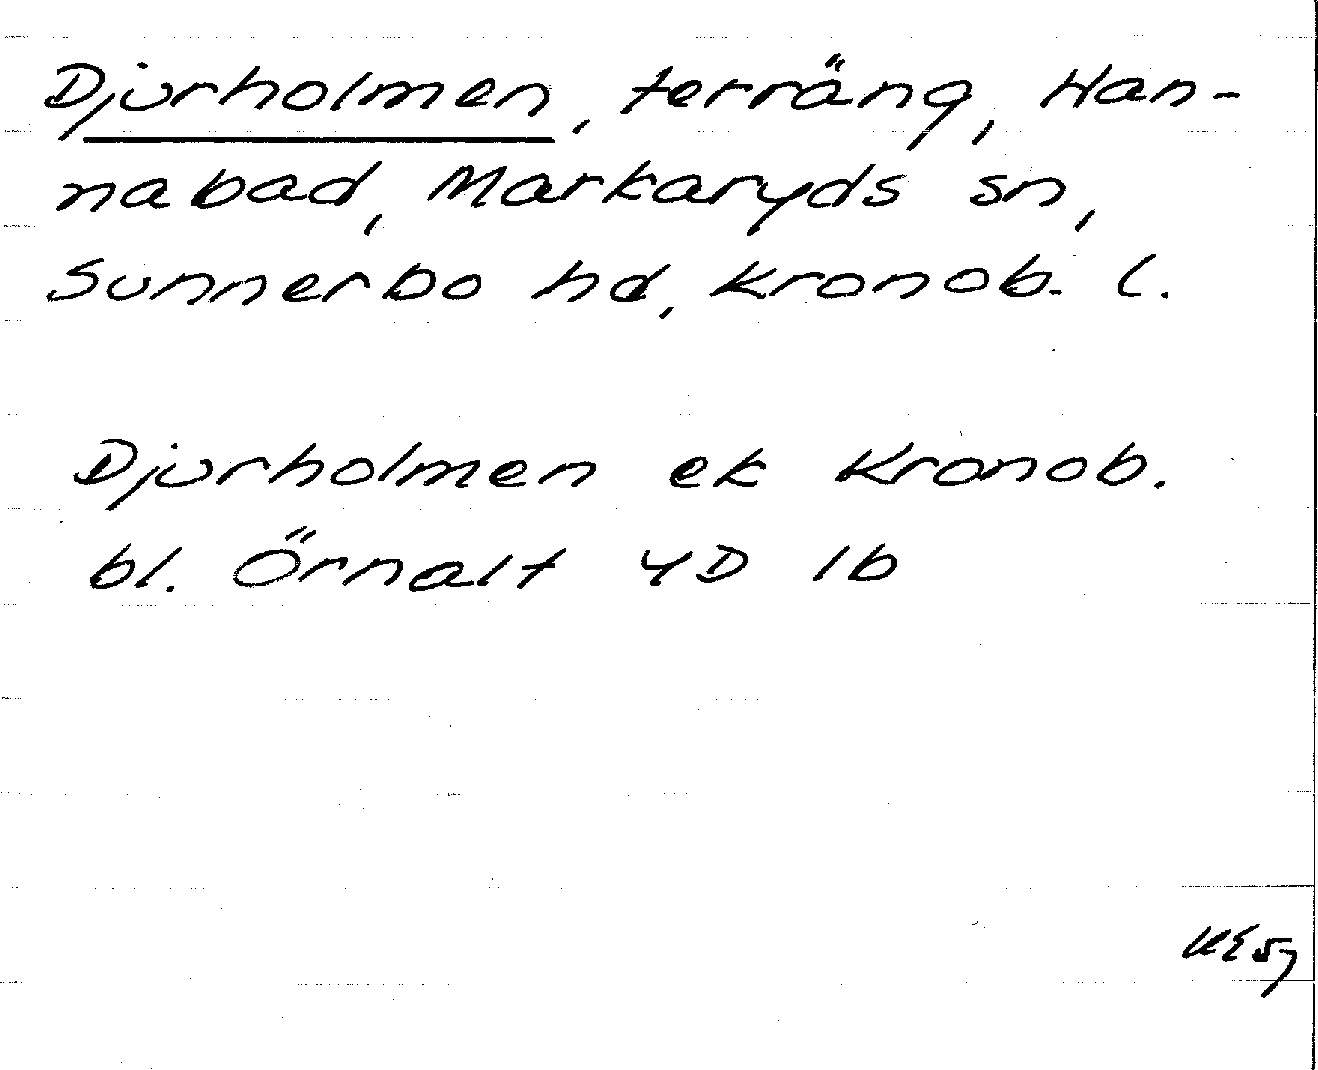 Djurholmen, terräng, Han-
nabad, Markaryds sn,
Sunnerbo hd, Kronob. l.
Djurholmen ek Kronob.
bl. Örnalt 4D 1b